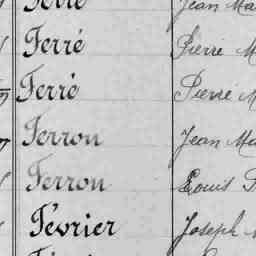 Jean Ma
Ferré Pierre M
Ferré Pierre M
Ferron Jean Ma
Ferron Louis
Février Joseph